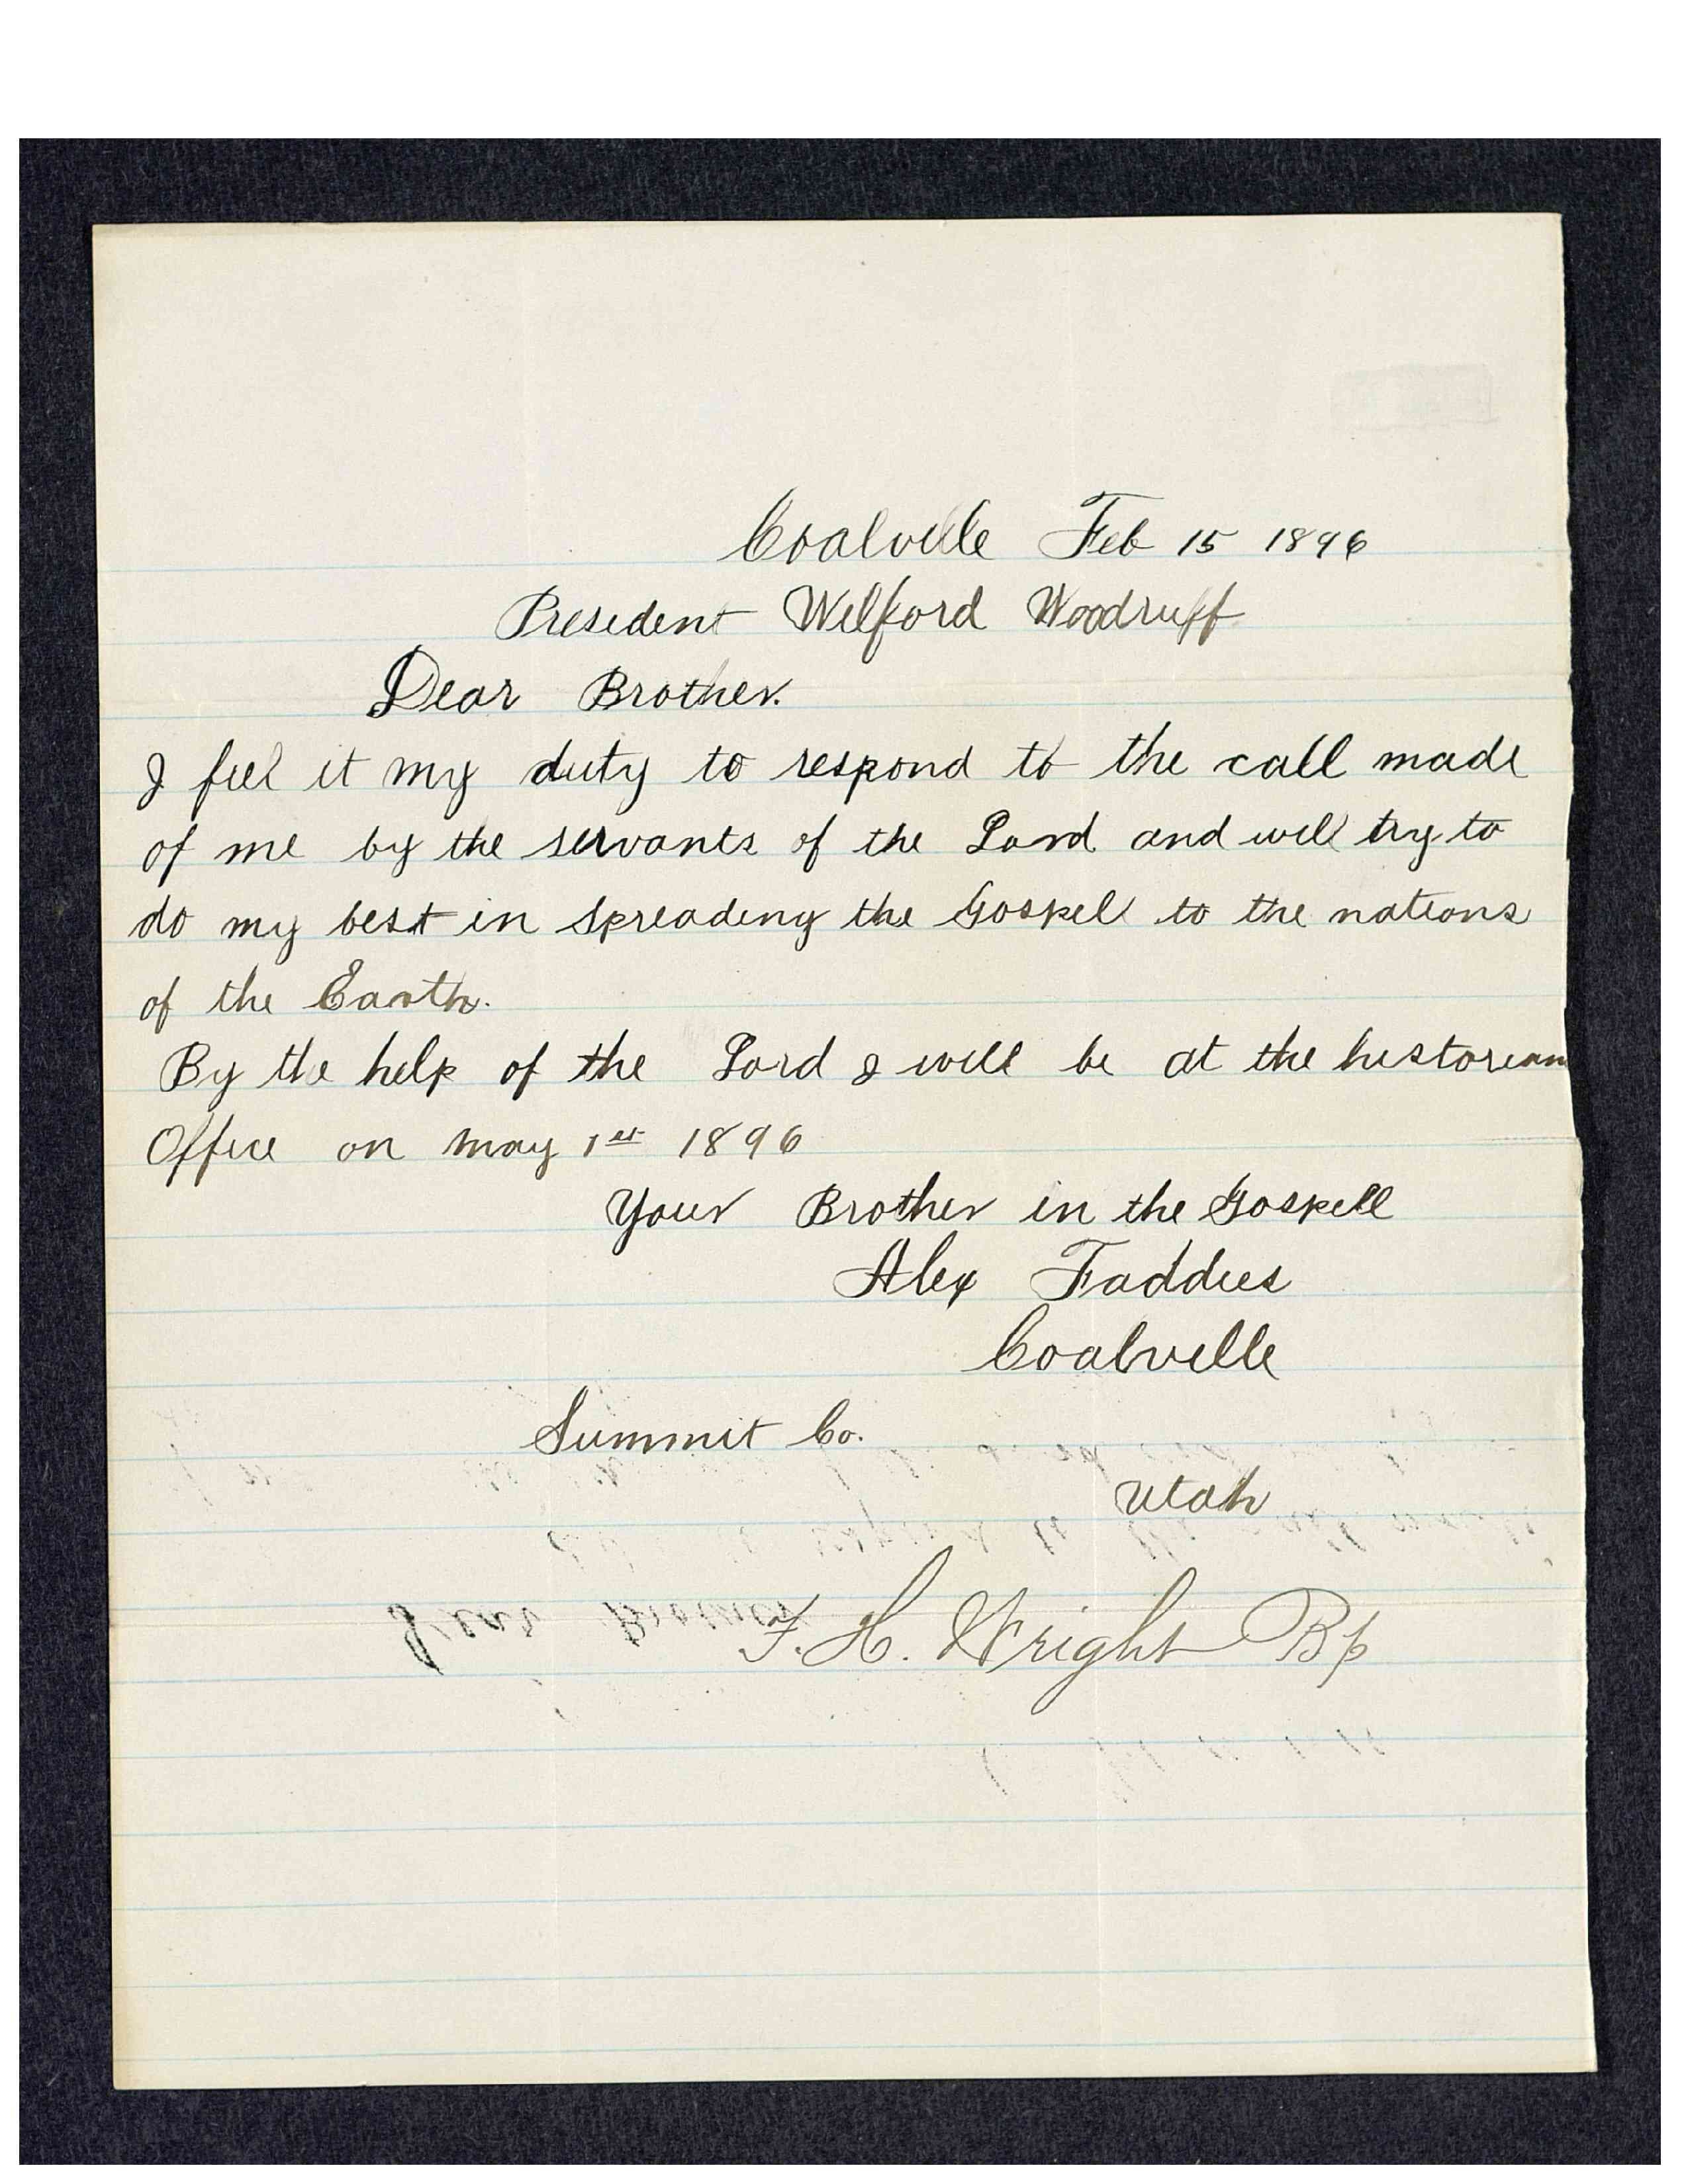 Coalville Feb 15 1896
President Wilford Woodruff
Dear Brother.
I feel it my duty to respond to the call made
of me by the servants of the Lord and will try to
do my best in spreading the Gospel to the nations
of the Earth.
By the help of the Lord I will be at the historian
Office on may 1st 1896
Your Brother in the Gospell
Alex Faddies
Coalville
Summit Co.
Utah
F. H. Wright Bp